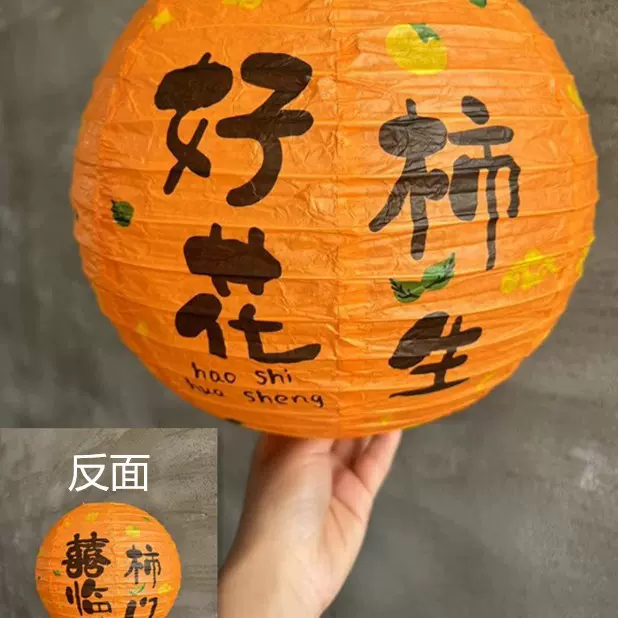 好柿
花生
hao shi
hua sheng
反面
囍柿
临门